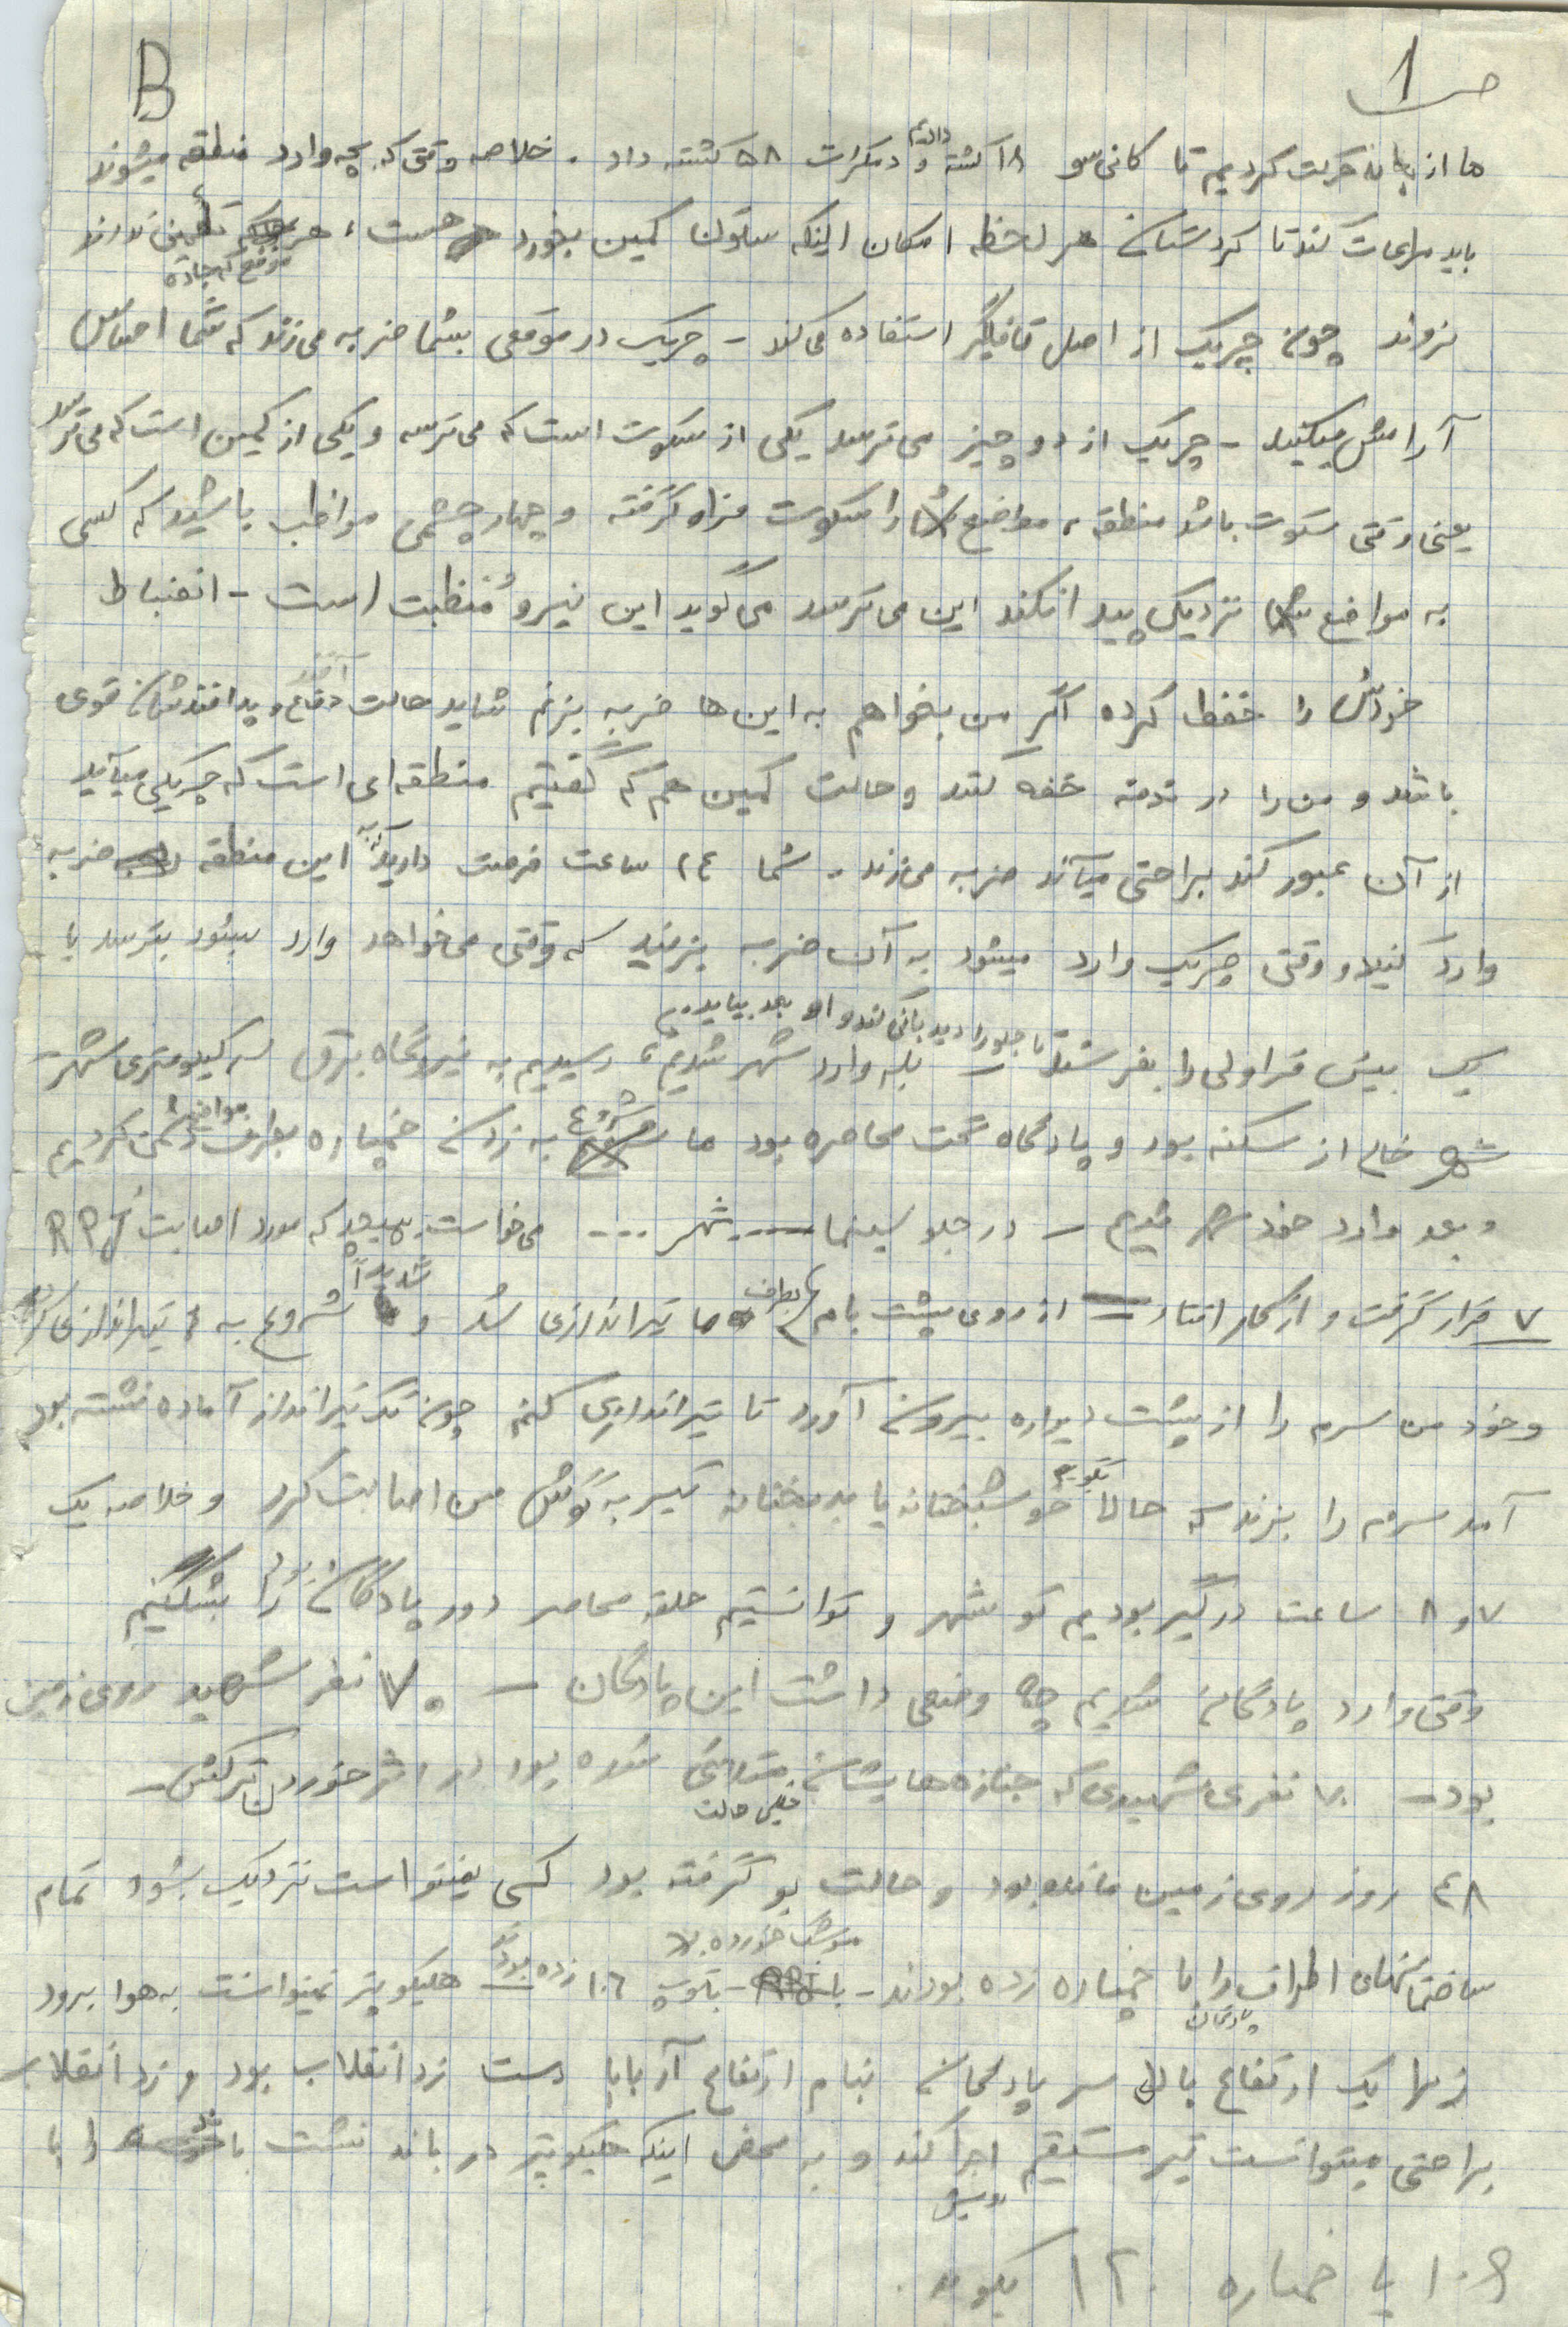 ص 1
B
ما از بانه حرکت کردیم تا کانی سو ۱۸ کشته دادیم و دمکرات ۵۸ کشته داد . خلاصه وقتی که بچه وارد منطقه میشوند
باید مراعات کند تا کردستان هر لحظه امکان اینکه ستون کمین بخورد هست ، هر موقع که جاده تأمین ندارند
نروند چون چریک از اصل غافلگیر استفاده می‌کند - چریک در موقعی بشما ضربه می‌زند که شما احساس
آرامش میکنید - چریک از دو چیز می ترسد یکی از سکوت است که می ترسه و یکی از کمین است که می ترسد
یعنی وقتی سکوت باشد منطقه ، مواضع شما را سکوت فراه گرفته و چهار چشمی مواظب باشید که کسی
به مواضع شما نزدیکی پیدا نکند این می ترسد می گوید این نیرو مُنظبت است - انضباط
خودش را حفظ کرده اگر من بخواهم به این ها ضربه بزنم شاید حالت دفاع و پدافندشان قوی
باشد و من را در خفه کنند و حالت کمین هم که گفتیم منطقه ای است که چریکی میآید
از آن عبور کند براحتی میآند ضربه می زند . شما ۲٤ ساعت فرصت دارید به این منطقه ضربه
وارد کنید و وقتی چریک وارد میشود به آن ضربه بزنید که وقتی می خواهد وارد بشود بترسد یا
یک پیش قراولی را بفرستد تا جلو را دیدبانی کند و او بعد بیاید . - بله وارد شهر شدیم ، رسیدیم به نیروگاه برق سه کیلومتری شهر -
شهر خالی از سکنه بود و پادگاه تحت محاصره بود ما شروع به زدن خمپاره بطرف مواضع دشمن کردیم
و بعد وارد خود شهر شدیم - در جلو سینما ---- شهر .... می خواست بپیچد که مورد اصابت RPJ
۷ قرار گرفت و از کار افتاد - از روی پشت بام بطرف ما تیراندازی شد و شدیداً شروع به تیراندازی کرد
و خود من سرم را از پشت دیواره بیرون آورد تا تیراندازی کنم چون تک تیرانداز آماده نشسته بود
آمد سرم را بزند که حالا بگویم خوشبختانه یا بدبختانه تیر به گوش من اصابت کرد و خلاصه یک
۷ و ۸ ساعت درگیر بودیم تو شهر و توانستیم حلقه محاصر دور پادگان را بشکنیم
وقتی وارد پادگان شدیم چه وضعی داشت این پادگان - ۷۰ نفر شهید روی زمین
بود - ۷۰ نفری شهیدی که جنازه هایشان متلاشی شده بود در اثر خوردن ترکش -
خیلی حالت
٤٨ روز روی زمین مانده بود و حالت بو گرفته بود کسی نمیتواست نزدیک بشود تمام
ساختمانهای اطراف پادگان را با خمپاره زده بودند - موشک خورده بود - بتوپ ۱۰٦ زده بودند هلیکوپتر نمیتوانست به هوا برود
زیرا یک ارتفاع بالای سر پادگان بنام ارتفاع آربابا دست ضد انقلاب بود و ضد انقلاب
براحتی میتوانست تیر مستقیم اجرا کند و به محض اینکه هلیکوپتر در باند نشست را با
یا خمپاره ۱۲۰ بکوبد .